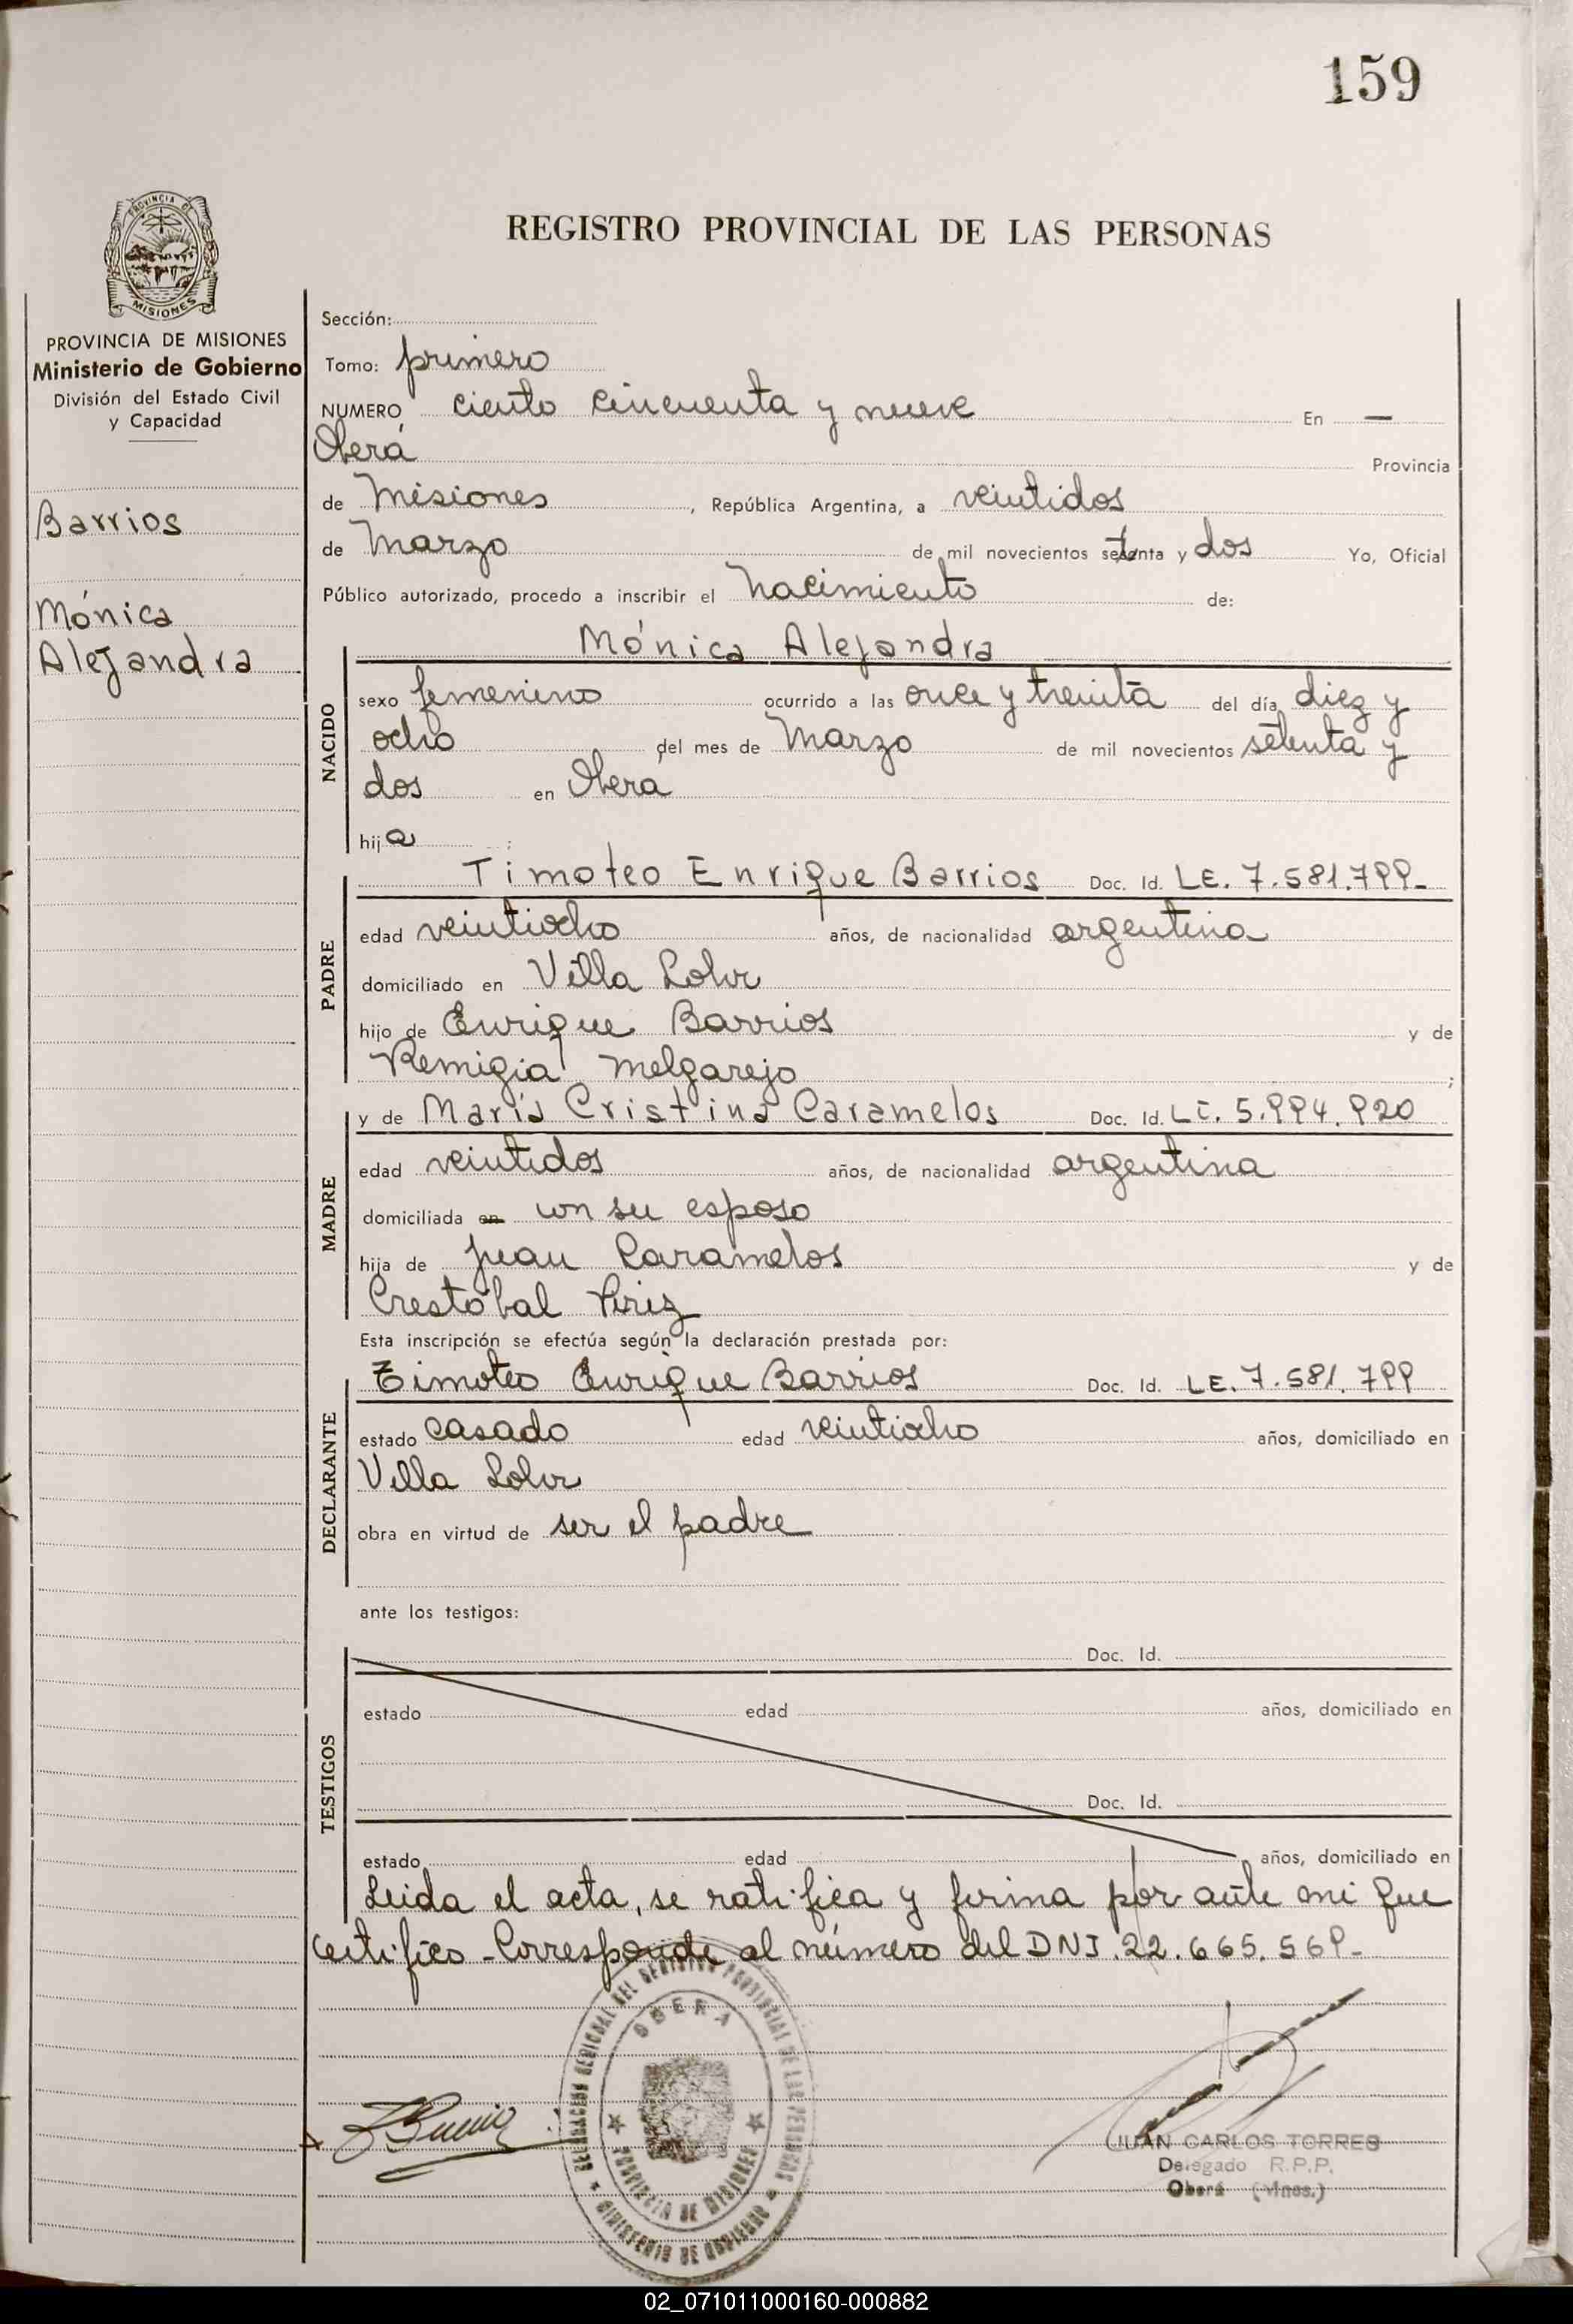 159
PROVINCIA DE
MISIONES
PROVINCIA DE MISIONES
Ministerio de Gobierno
División del Estado Civil
y Capacidad
Barrios
Mónica
Alejandra
REGISTRO PROVINCIAL DE LAS PERSONAS
Sección:
Tomo: primero
NUMERO ciento cincuenta y nueve En —
Oberá Provincia
de Misiones, República Argentina, a veintidos
de Marzo de mil novecientos setenta y dos Yo, Oficial
Público autorizado, procedo a inscribir el nacimiento de:
NACIDO
Mónica Alejandra
sexo femenino ocurrido a las once y treinta del día diez y
ocho del mes de Marzo de mil novecientos setenta y
dos en Oberá
hija :
PADRE
Timoteo Enrique Barrios Doc. Id. LE. 7.581.799-
edad veintiocho años, de nacionalidad argentina
domiciliado en Villa Lohr
hijo de Enrique Barrios y de
Remigia Melgarejo ;
MADRE
y de María Cristina Caramelos Doc. Id. LC. 5.994.920
edad veintidos años, de nacionalidad argentina
domiciliada en con su esposo
hija de Juan Caramelos y de
Crestóbal
Esta inscripción se efectúa según la declaración prestada por:
DECLARANTE
Timoteo Enrique Barrios Doc. Id. LE. 7.581.799
estado casado edad veintiocho años, domiciliado en
Villa Lohr
obra en virtud de ser el padre
ante los testigos:
TESTIGOS
Doc. Id.
estado edad años, domiciliado en
Doc. Id.
estado edad años, domiciliado en
Leida el acta, se ratifica y firma por ante mi que
certifico - Corresponde al número del DNI. 22.665.569-
DELEGACION REGIONAL DEL REGISTRO PROVINCIAL DE LAS PERSONAS
OBERA
PROVINCIA DE MISIONES
MINISTERIO DE GOBIERNO
JUAN CARLOS TORRES
Delegado R.P.P.
Oberá (Mnes.)
02_071011000160-000882